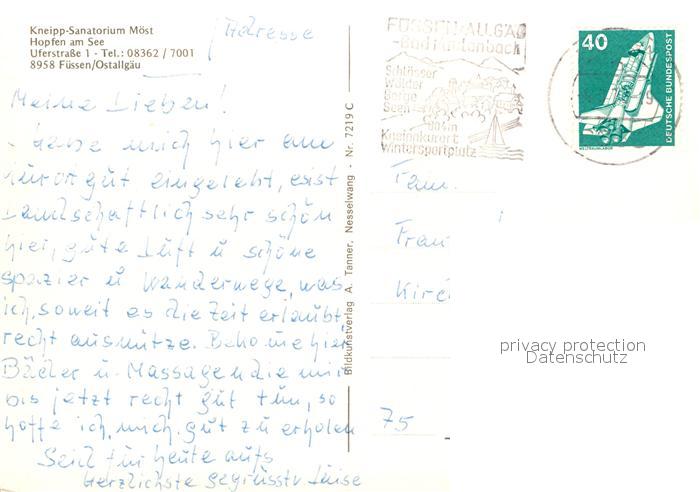 Kneipp-Sanatorium Möst
Hopfen am See
Uferstraße 1 - Tel.: 08362 / 7001
8958 Füssen/Ostallgäu
Adresse
Meine Lieben!
habe mich hier am
Kurort gut eingelebt, es ist
Landschaftlich sehr schön
hier, gute Luft u schöne
spazier u Wanderwege, was
ich, soweit es die Zeit erlaubt
recht ausnütze. Bekomme hier
Bäder u. Massagen die mir
bis jetzt recht gut tun, so
hoffe ich, mich gut zu erholen
Seid für heute aufs
herzlichste gegrüsst v. Luise
Bildkunstverlag A. Tanner, Nesselwang - Nr. 7219 C
FÜSSEN-ALLGÄU
-Bad Faulenbach
Schlösser
Wälder
Berge
Seen
Kneippkurort
Wintersportplatz
40
DEUTSCHE BUNDESPOST
WELTRAUMLABOR
Fam.
75
privacy protection
Datenschutz